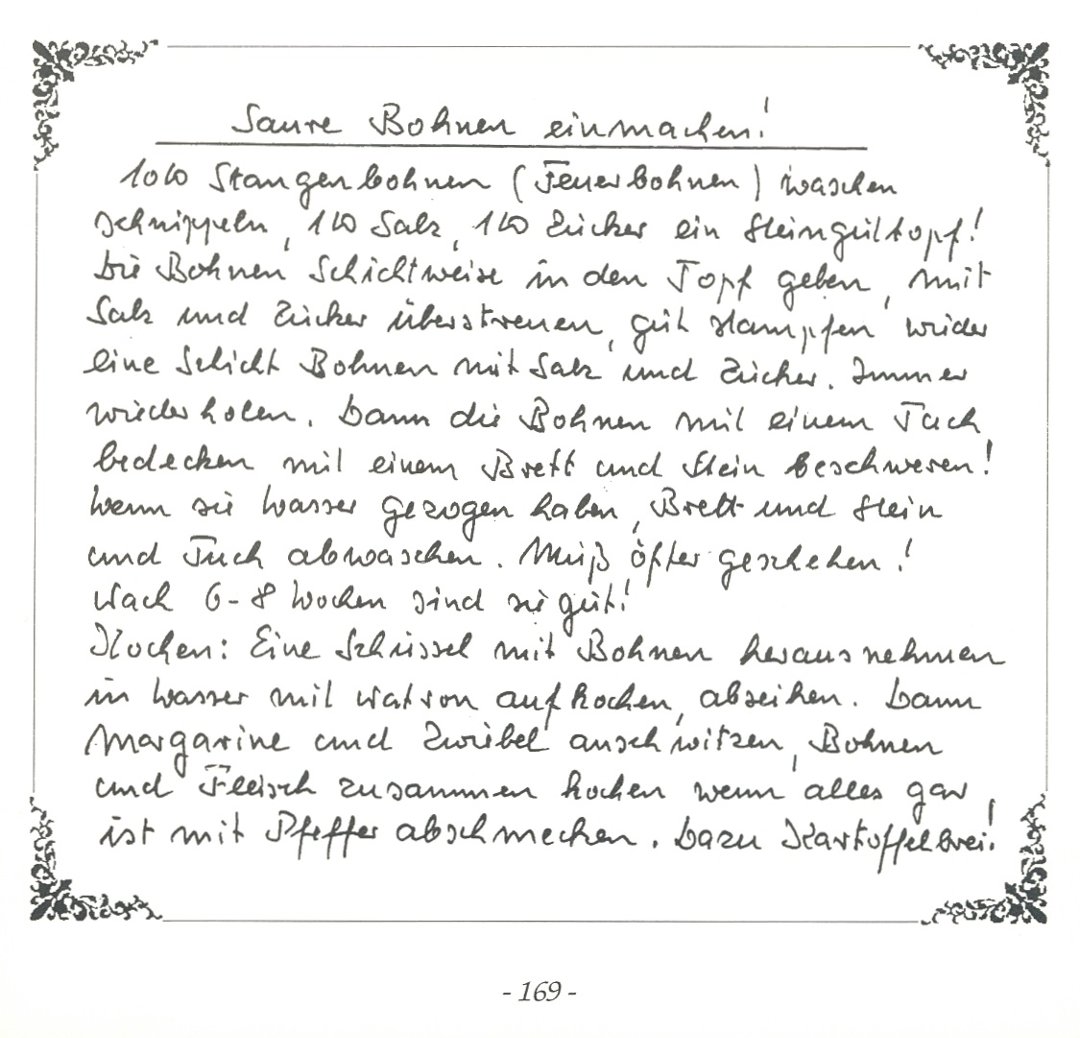 Saure Bohnen einmachen!
10 ℔ Stangenbohnen (Feuerbohnen) waschen
schnippeln, 1 ℔ Salz, 1 ℔ Zucker ein Steinguttopf!
Die Bohnen Schichtweise in den Topf geben, mit
Salz und Zucker überstreuen, gut stampfen wieder
eine Schicht Bohnen mit Salz und Zucker. Immer
wiederholen. Dann die Bohnen mit einem Tuch,
bedecken mit einem Brett und Stein beschweren!
Wenn sie Wasser gezogen haben, Brett und Stein
und Tuch abwaschen. Muß öfter geschehen!
Nach 6-8 Wochen sind sie gut!
Kochen: Eine Schüssel mit Bohnen herausnehmen
in Wasser mit Natron aufkochen, abseihen. Dann
Margarine und Zwiebel anschwitzen, Bohnen
und Fleisch zusammen kochen wenn alles gar,
ist mit Pfeffer abschmecken. Dazu Kartoffelbrei.
- 169 -